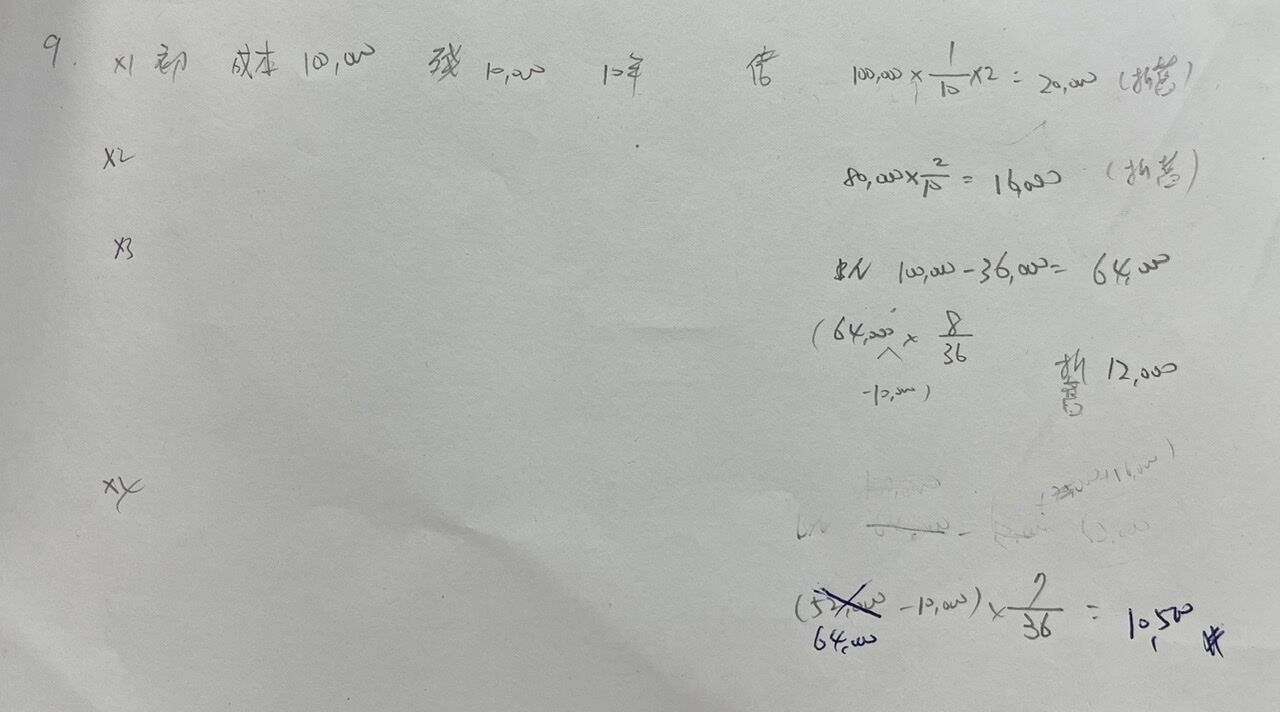 9. X1初 成本 10,000 殘 10,000 10年 倍 100,000 × 1/10 ×2 = 20,000 (折舊)
X2 80,000 × 2/10 = 16,000 (折舊)
X3 BV 100,000 - 36,000 = 64,000
(64,000 × 8/36
-10,000) 折舊 12,000
X4
BV
(52,000 -10,000) × 7/36 = 10,500 #
64,000